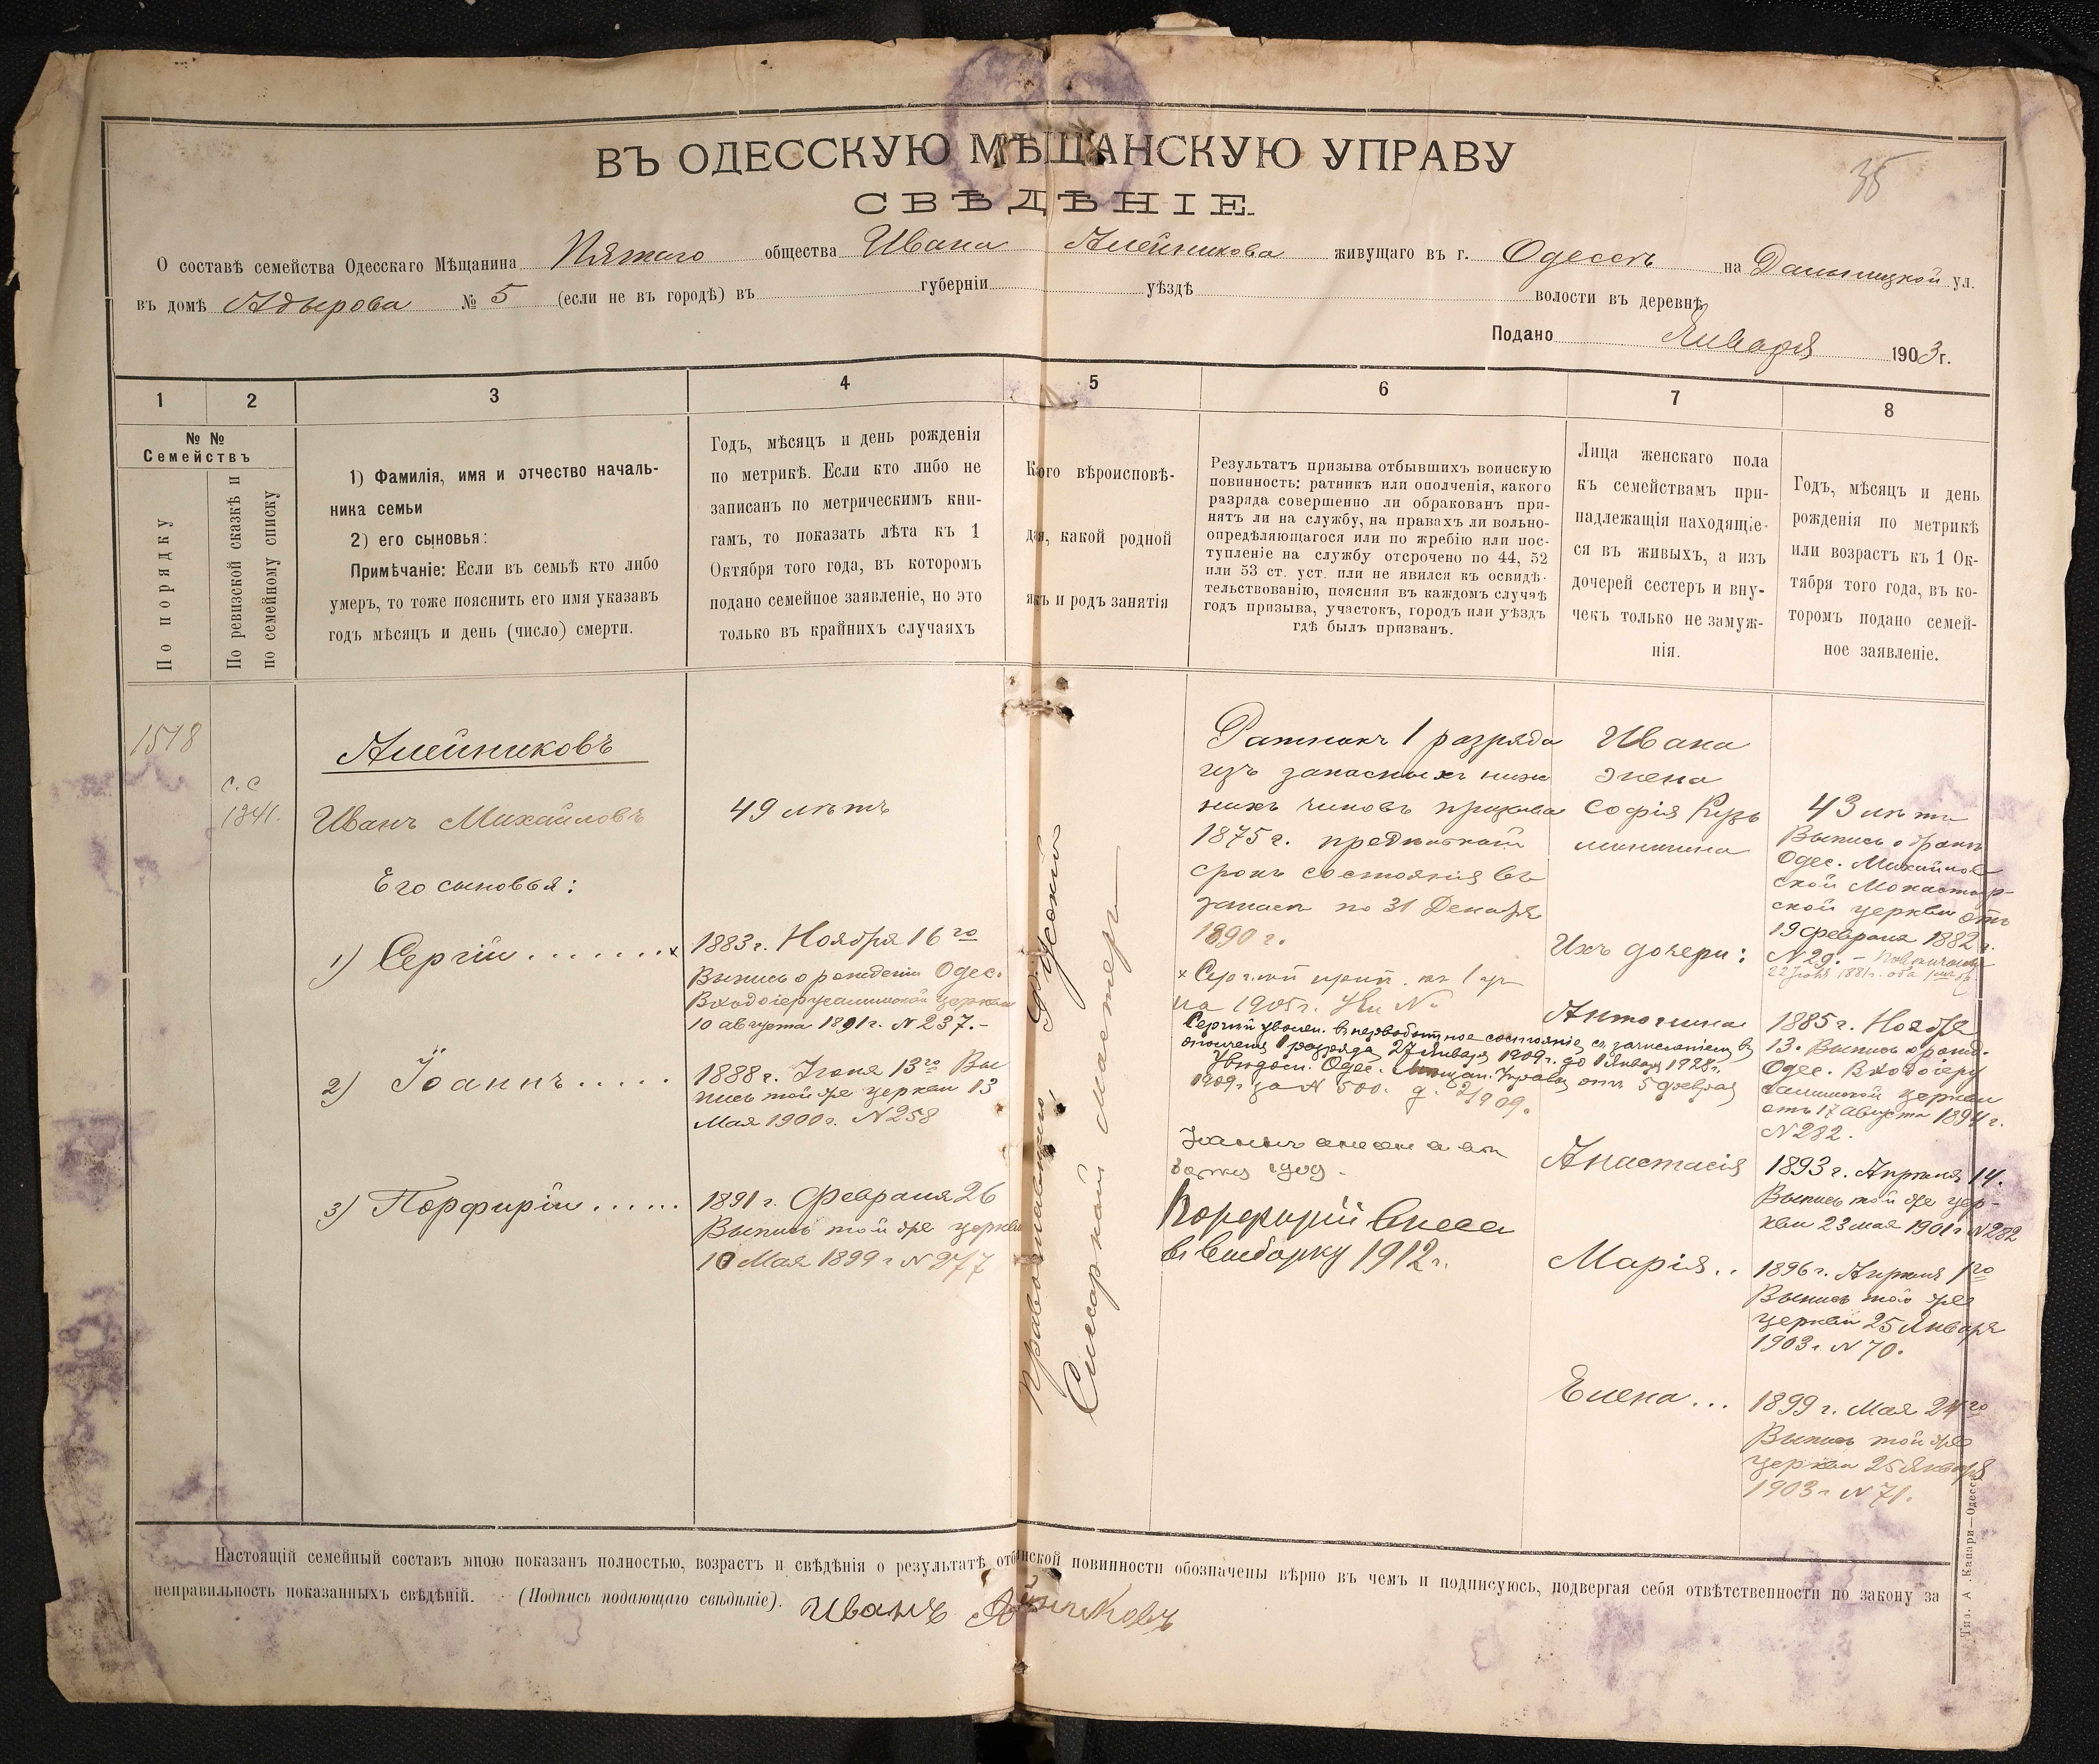 35
ВЪ ОДЕССКУЮ МѢЩАНСКУЮ УПРАВУ
СВѢДѢНІЕ.
О составѣ семейства Одесскаго Мѣщанина Пятаго общества Ивана Алейникова живущаго въ г. Одессѣ на Дальницкой ул.
въ домѣ Адырова № 5 (если не въ городѣ) въ губерніи уѣздѣ волости въ деревнѣ
Подано Января 1903 г.
1
2
3
4
5
6
7
8
№ №
Семействъ
По порядку
По ревизской сказкѣ и
по семейному списку
1) Фамилія, имя и отчество началь-
ника семьи
2) его сыновья:
Примѣчаніе: Если въ семьѣ кто либо
умеръ, то тоже пояснить его имя указавъ
годъ мѣсяцъ и день (число) смерти.
Годъ, мѣсяцъ и день рожденія
по метрикѣ. Если кто либо не
записанъ по метрическимъ кни-
гамъ, то показать лѣта къ 1
Октября того года, въ которомъ
подано семейное заявленіе, но это
только въ крайнихъ случаяхъ
Кого вѣроисповѣ-
дія, какой родной
якъ и родъ занятія
Результатъ призыва отбывшихъ воинскую
повинность: ратникъ или ополченія, какого
разряда совершенно ли обракованъ при-
нятъ ли на службу, на правахъ ли вольно-
опредѣляющагося или по жребію или пос-
тупленіе на службу отсрочено по 44, 52
или 53 ст. уст. или не явился къ освидѣ-
тельствованію, поясняя въ каждомъ случаѣ
годъ призыва, участокъ, городъ или уѣздъ
гдѣ былъ призванъ.
Лица женскаго пола
къ семействамъ при-
надлежащія находящіе-
ся въ живыхъ, а изъ
дочерей сестеръ и вну-
чекъ только не замуж-
нія.
Годъ, мѣсяцъ и день
рожденія по метрикѣ
или возрастъ къ 1 Ок-
тября того года, въ ко-
торомъ подано семей-
ное заявленіе.
1518
с.с
1341.
Алейниковъ
Иванъ Михайловъ
Его сыновья:
1) Сергій .......х
2) Іоаннъ .....
3) Порфирій ......
49 лѣтъ
1883 г. Ноября 16го
Выпись о рожденіи Одес.
Входоіерусалимской церкви
10 августа 1891 г. N 237.-
1888 г. Іюня 13го Вы
пись той же церкви 13
Мая 1900 г. N 258
1891 г. Февраля 26
Выпись той же церкви
10 Мая 1899 г N 277
Православнаго, русскій
Слесарный мастеръ
Ратникъ 1 разряда
изъ запасныхъ ниж
нихъ чиновъ призыва
1875 г.
срокъ состоянія въ
запасѣ по 31 Декабря
1890 г.
х Сергій
на 1905 г.
Сергій уволен. въ первобытное состояніе съ зачисленіемъ въ
ополченія 1 разряда 27 Января 1909 г. до 1 Января 1928 г.
Увѣдом. Одес. Мѣщан. Управы отъ 5 февраля
1909 г за N 500.
1909.
Порфирій внесен
въ выборку 1912 г.
Ивана
жена
Софія Кузь
минична
Ихъ дочери:
Антонина
Анастасія
Марія ..
Елена ...
43 лѣтъ
Выпись о бракѣ
Одес. Михайлов
ской Монастыр-
ской церкви отъ
19 Февраля 1882 г.
N 29. -
1885 г. Ноября
13. Выпись о рожд.
Одес. Входоіеру
салимской церкви
отъ 17 августа 1894 г.
N 282.
1893 г. Апрѣля 14.
Выпись той же цер-
кви 23 мая 1901 г N 282
1896 г. Апрѣля 1го
Выпись той же
церкви 25 Января
1903 г N 70.
1899 г. Мая 24го
Выпись той же
церкви 25 Января
1903 г N 71.
Настоящій семейный составъ мною показанъ полностью, возрастъ и свѣдѣнія о результатѣ отб инской повинности обозначены вѣрно въ чемъ и подписуюсь, подвергая себя отвѣтственности по закону за
неправильность показанныхъ свѣдѣній. (Подпись подающаго свѣдѣніе). Иванъ Алейниковъ
Тип. А. Капари—Одесса